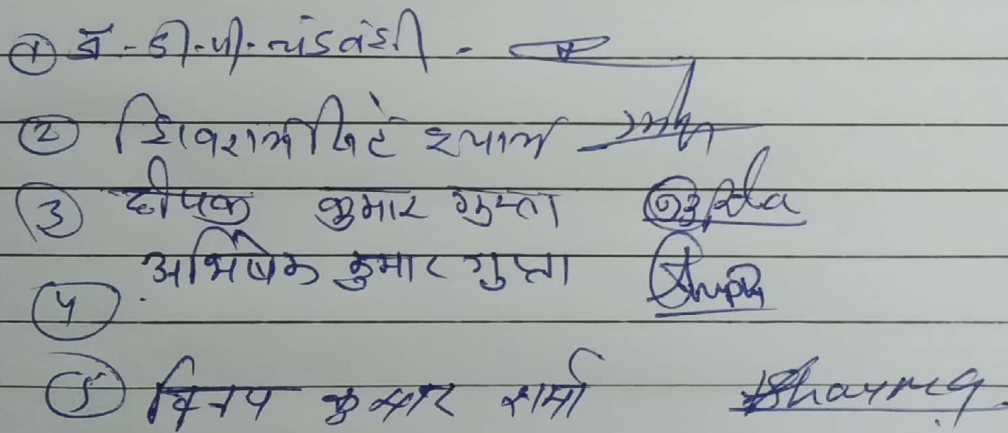 ① डॉ - डी - पी - चंद्रवंशी -
② शिवराम सिंह श्याम
③ दीपक कुमार गुप्ता Gupta
④ अभिषेक कुमार गुप्ता Gupta
⑤ विनय कुमार शर्मा Sharma